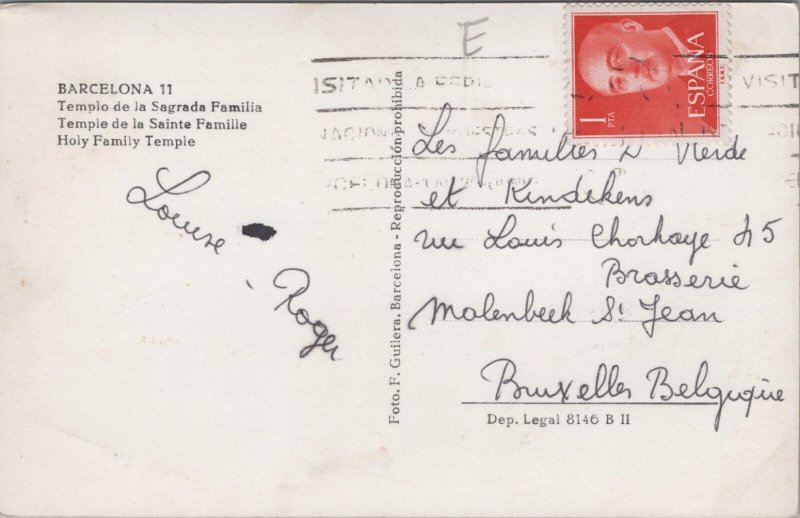 BARCELONA 11
Templo de la Sagrada Familia
Temple de la Sainte Famille
Holy Family Temple
Louise - Roger
Foto. F. Guilera. Barcelona - Reproducción prohibida
E
1 PTA
ESPAÑA
CORREOS
F.N.M.T.
VISIT
Les familles D Vierde
et Kindekens
rue Louis Chorhaye 45
Brasserie
Molenbeek St Jean
Bruxelles Belgique
Dep. Legal 8146 B II